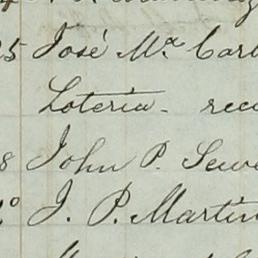 5 José Ma. Carb
Lotería - rec
8 John P. Sewe
o J. P. Martin